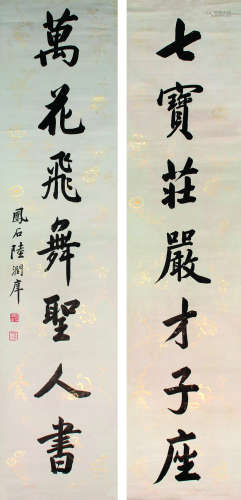 七寶莊嚴才子座
萬花飛舞聖人書
鳳石陸潤庠